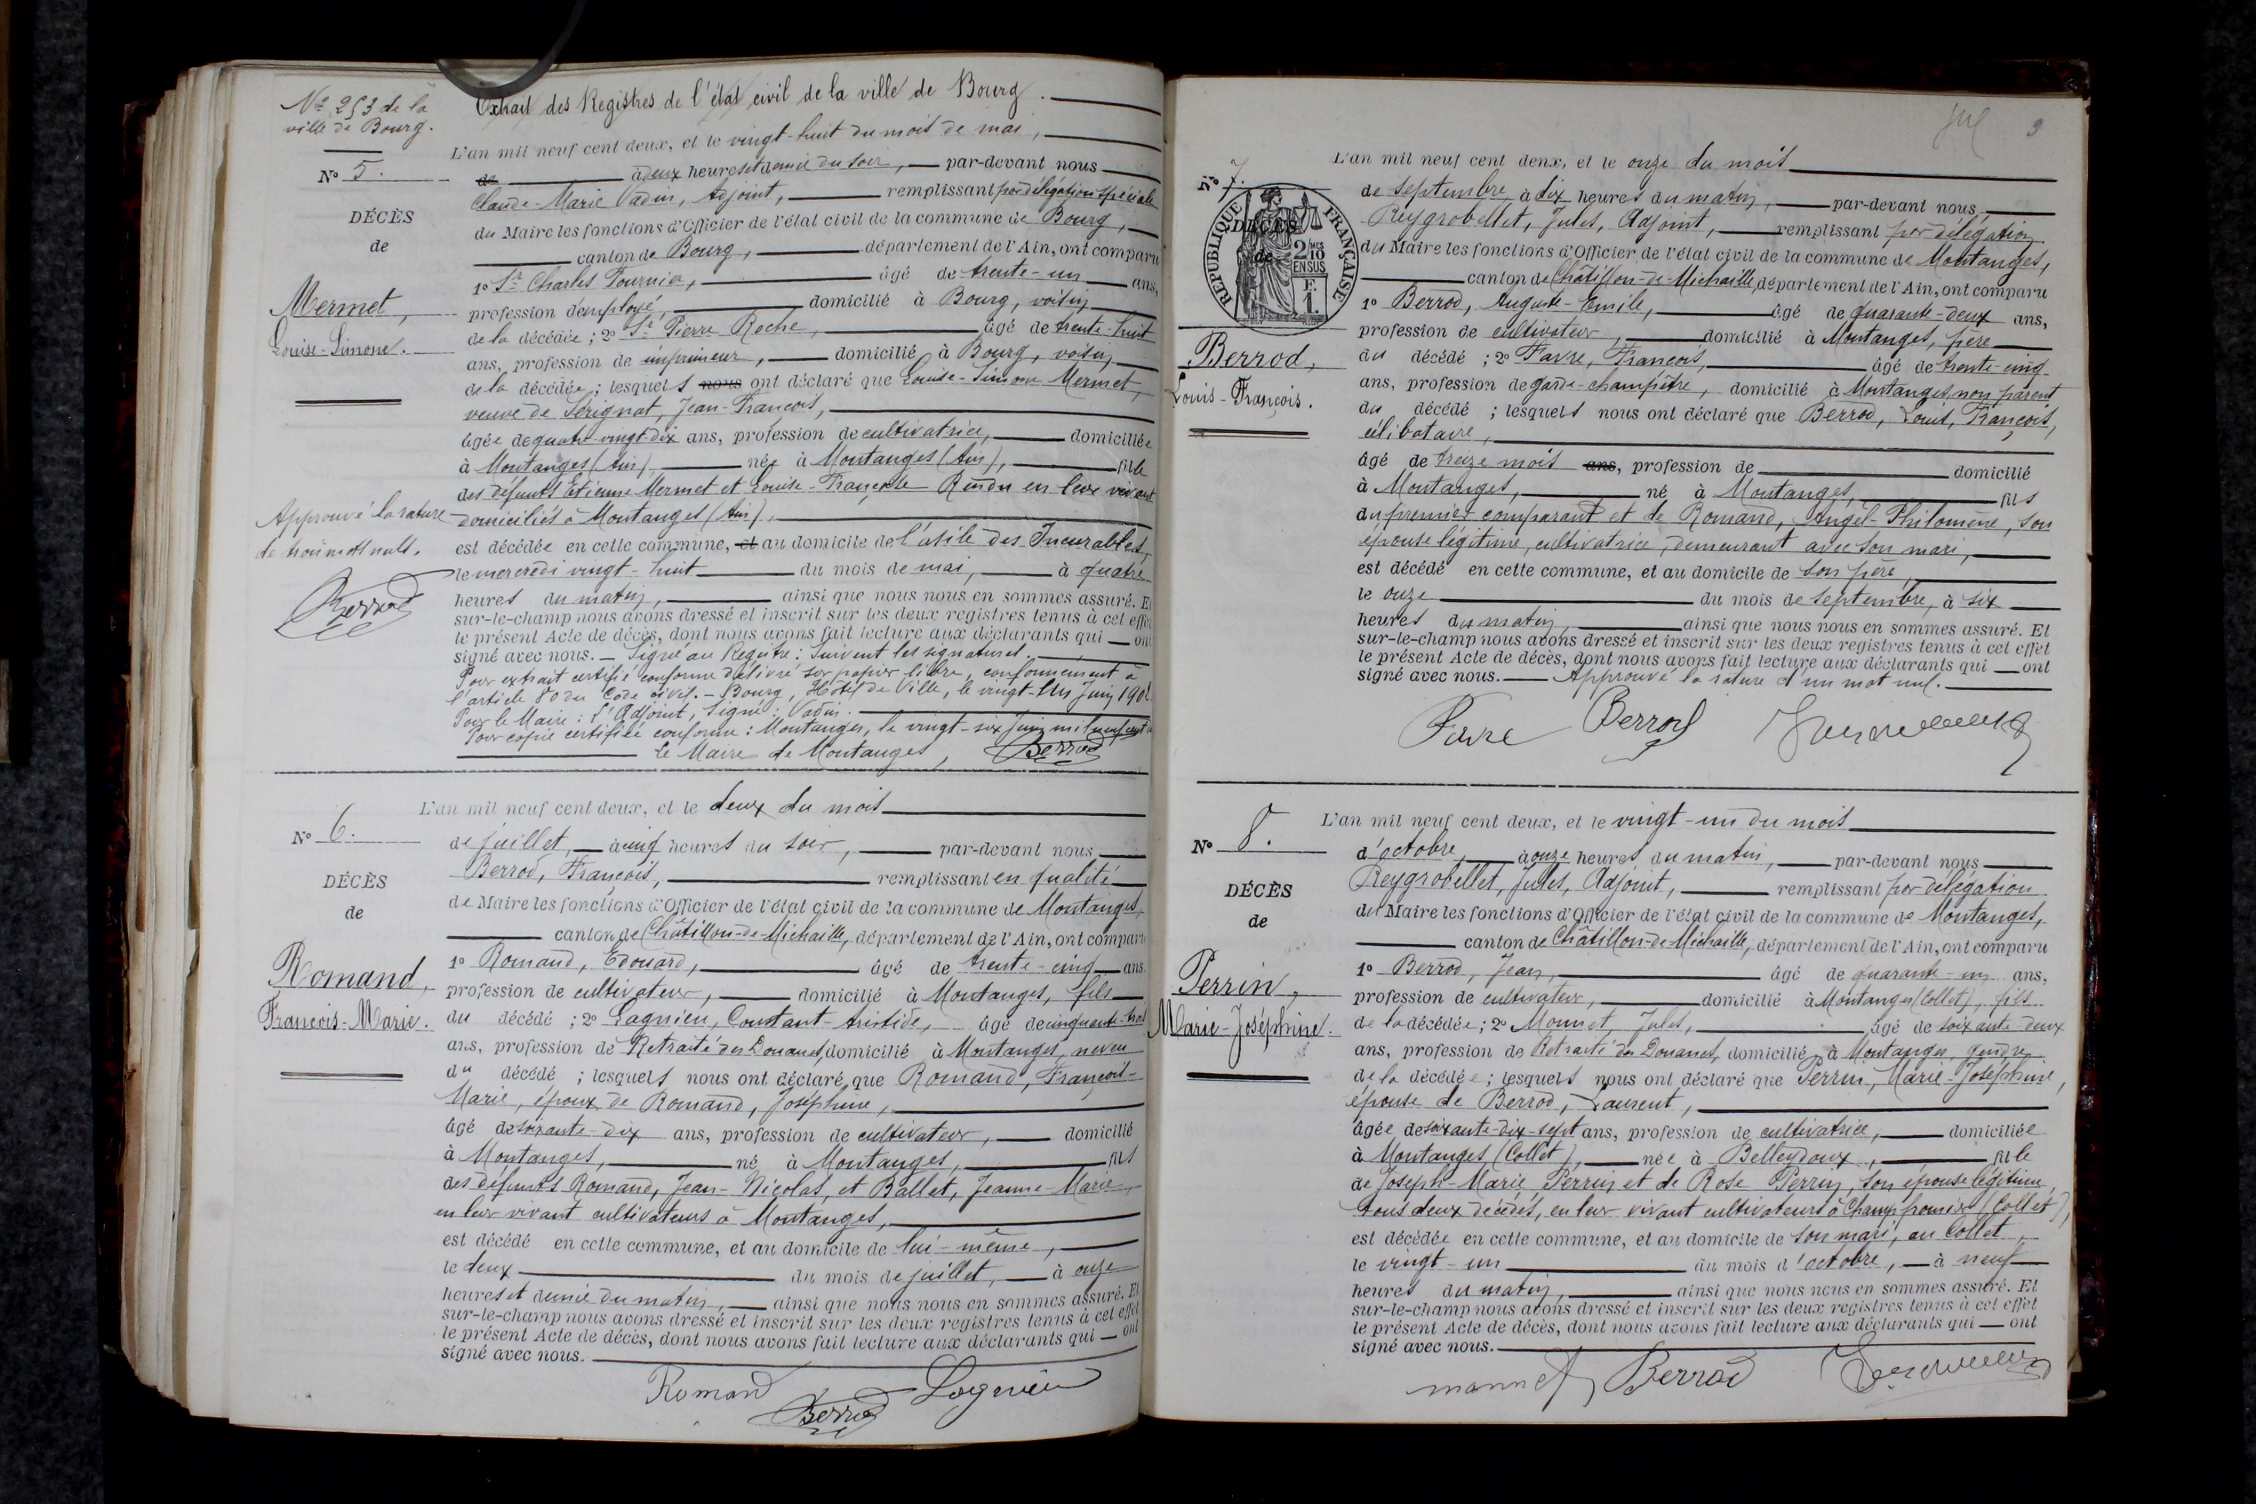 Nº 253 de la
ville de Bourg.
Nº 5.
DÉCÈS
de
Mermet,
Louise-Simone.
Approuvé la rature
de trois mots nuls.
Berrod
Extrait des Registres de l'état civil de la ville de Bourg.
L'an mil neuf cent deux, et le vingt-huit du mois de mai,
de à deux heures et demie du soir, par-devant nous
Claude-Marie Vadin, Adjoint, remplissant par délégation spéciale
du Maire les fonctions d'Officier de l'état civil de la commune de Bourg,
canton de Bourg, département de l'Ain, ont comparu
1º Sr Charles Fournier, âgé de trente-un ans,
profession d'employé, domicilié à Bourg, voisin
de la décédée ; 2º Sr Pierre Roche, âgé de trente-huit
ans, profession de imprimeur, domicilié à Bourg, voisin
de la décédée ; lesquels nous ont déclaré que Louise-Simone Mermet,
veuve de Sérignat, Jean-François,
âgée de quatre-vingt-dix ans, profession de cultivatrice, domiciliée
à Montanges (Ain) née à Montanges (Ain), fille
des défunts Etienne Mermet et Louise-Françoise Rendu en leur vivant
domiciliés à Montanges (Ain),
est décédée en cette commune, et au domicile de l'asile des Incurables,
le mercredi vingt-huit du mois de mai, à quatre
heures du matin, ainsi que nous nous en sommes assuré. Et
sur-le-champ nous avons dressé et inscrit sur les deux registres tenus à cet effet
le présent Acte de décès, dont nous avons fait lecture aux déclarants qui ont
signé avec nous. – Signé au Registre : Suivent les signatures.
Pour extrait certifié conforme délivré sur papier libre, conformément à
l'article 80 du Code civil. – Bourg, Hôtel de Ville, le vingt-un Juin 1902
Pour le Maire : L'Adjoint, Signé : Vadin.
Pour copie certifiée conforme : Montanges, le vingt-six Juin mil neuf cent
Le Maire de Montanges, Berrod
Nº 6.
DÉCÈS
de
Romand,
François-Marie.
L'an mil neuf cent deux, et le deux du mois
de juillet, à cinq heures du soir, par-devant nous
Berrod, François, remplissant en qualité
de Maire les fonctions d'Officier de l'état civil de la commune de Montanges,
canton de Châtillon-de-Michaille, département de l'Ain, ont comparu
1º Romand, Edouard, âgé de trente-cinq ans
profession de cultivateur, domicilié à Montanges, fils
du décédé ; 2º Lagnieu, Constant-Aristide, âgé de cinquante-trois
ans, profession de Retraité des Douanes, domicilié à Montanges, neveu
du décédé ; lesquels nous ont déclaré que Romand, François-
Marie, époux de Romand, Joséphine,
âgé de soixante-dix ans, profession de cultivateur, domicilié
à Montanges, né à Montanges, fils
des défunts Romand, Jean-Nicolas, et Ballet, Jeanne-Marie,
en leur vivant cultivateurs à Montanges,
est décédé en cette commune, et au domicile de lui-même,
le deux du mois de juillet, à onze
heures et demie du matin, ainsi que nous nous en sommes assuré. Et
sur-le-champ nous avons dressé et inscrit sur les deux registres tenus à cet effet
le présent Acte de décès, dont nous avons fait lecture aux déclarants qui ont
signé avec nous.
Romand Lagnieu
Berrod
3
Nº 7.
RÉPUBLIQUE FRANÇAISE
2/10 EN SUS
F. 1.
DÉCÈS
de
Berrod,
Louis-François.
L'an mil neuf cent deux, et le onze du mois
de septembre, à dix heures du matin, par-devant nous
Reygrobellet, Jules, Adjoint, remplissant par délégation
du Maire les fonctions d'Officier de l'état civil de la commune de Montanges,
canton de Châtillon-de-Michaille, département de l'Ain, ont comparu
1º Berrod, Auguste-Emile, âgé de quarante-deux ans,
profession de cultivateur, domicilié à Montanges, père
du décédé ; 2º Favre, François, âgé de trente-cinq
ans, profession de garde-champêtre, domicilié à Montanges, non parent
du décédé ; lesquels nous ont déclaré que Berrod, Louis, François,
célibataire,
âgé de treize mois ans, profession de domicilié
à Montanges, né à Montanges, fils
du premier comparant et de Romand, Angèl-Philomène, son
épouse légitime, cultivatrice, demeurant avec son mari,
est décédé en cette commune, et au domicile de son père,
le onze du mois de septembre, à six
heures du matin, ainsi que nous nous en sommes assuré. Et
sur-le-champ nous avons dressé et inscrit sur les deux registres tenus à cet effet
le présent Acte de décès, dont nous avons fait lecture aux déclarants qui ont
signé avec nous. Approuvé la rature d'un mot nul.
Favre Berrod
Nº 8.
DÉCÈS
de
Perrin,
Marie-Joséphine.
L'an mil neuf cent deux, et le vingt-un du mois
d'octobre, à onze heures du matin, par-devant nous
Reygrobellet, Jules, Adjoint, remplissant par délégation
du Maire les fonctions d'Officier de l'état civil de la commune de Montanges,
canton de Châtillon-de-Michaille, département de l'Ain, ont comparu
1º Berrod, Jean, âgé de quarante-un ans,
profession de cultivateur, domicilié à Montanges (Collet), fils
de la décédée ; 2º Monnet, Jules, âgé de soixante-deux
ans, profession de Retraité des Douanes, domicilié à Montanges, gendre
de la décédée ; lesquels nous ont déclaré que Perrin, Marie-Joséphine,
épouse de Berrod, Laurent,
âgée de soixante-dix-sept ans, profession de cultivatrice, domiciliée
à Montanges (Collet), née à Belleydoux, fille
de Joseph-Marie Perrin et de Rose Perrin, son épouse légitime,
tous deux décédés, en leur vivant cultivateurs à Champfromier (Collet),
est décédée en cette commune, et au domicile de son mari, au Collet,
le vingt-un du mois d'octobre, à neuf
heures du matin, ainsi que nous nous en sommes assuré. Et
sur-le-champ nous avons dressé et inscrit sur les deux registres tenus à cet effet
le présent Acte de décès, dont nous avons fait lecture aux déclarants qui ont
signé avec nous.
monnet Berrod